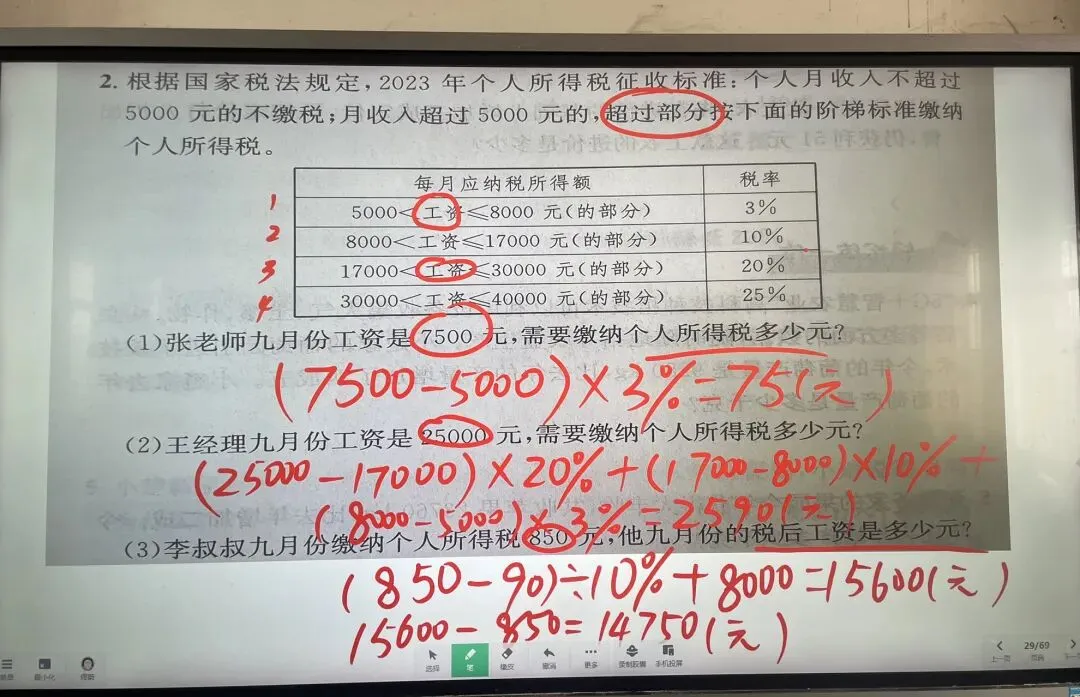 2. 根据国家税法规定,2023 年个人所得税征收标准:个人月收入不超过
5000 元的不缴税;月收入超过 5000 元的,超过部分按下面的阶梯标准缴纳
个人所得税。
每月应纳税所得额 税率
1 5000<工资≤8000 元(的部分) 3%
2 8000<工资≤17000 元(的部分) 10%
3 17000<工资≤30000 元(的部分) 20%
4 30000<工资≤40000 元(的部分) 25%
(1)张老师九月份工资是 7500 元,需要缴纳个人所得税多少元?
(7500-5000)×3%=75(元)
(2)王经理九月份工资是 25000 元,需要缴纳个人所得税多少元?
(25000-17000)×20%+(17000-8000)×10%+
(8000-5000)×3%=2590(元)
(3)李叔叔九月份缴纳个人所得税 850 元,他九月份的税后工资是多少元?
(850-90)÷10%+8000=15600(元)
15600-850=14750(元)
选择 笔 橡皮 撤消 更多 录制胶囊 手机投屏
最小化
上一页 29/69 页码 下一